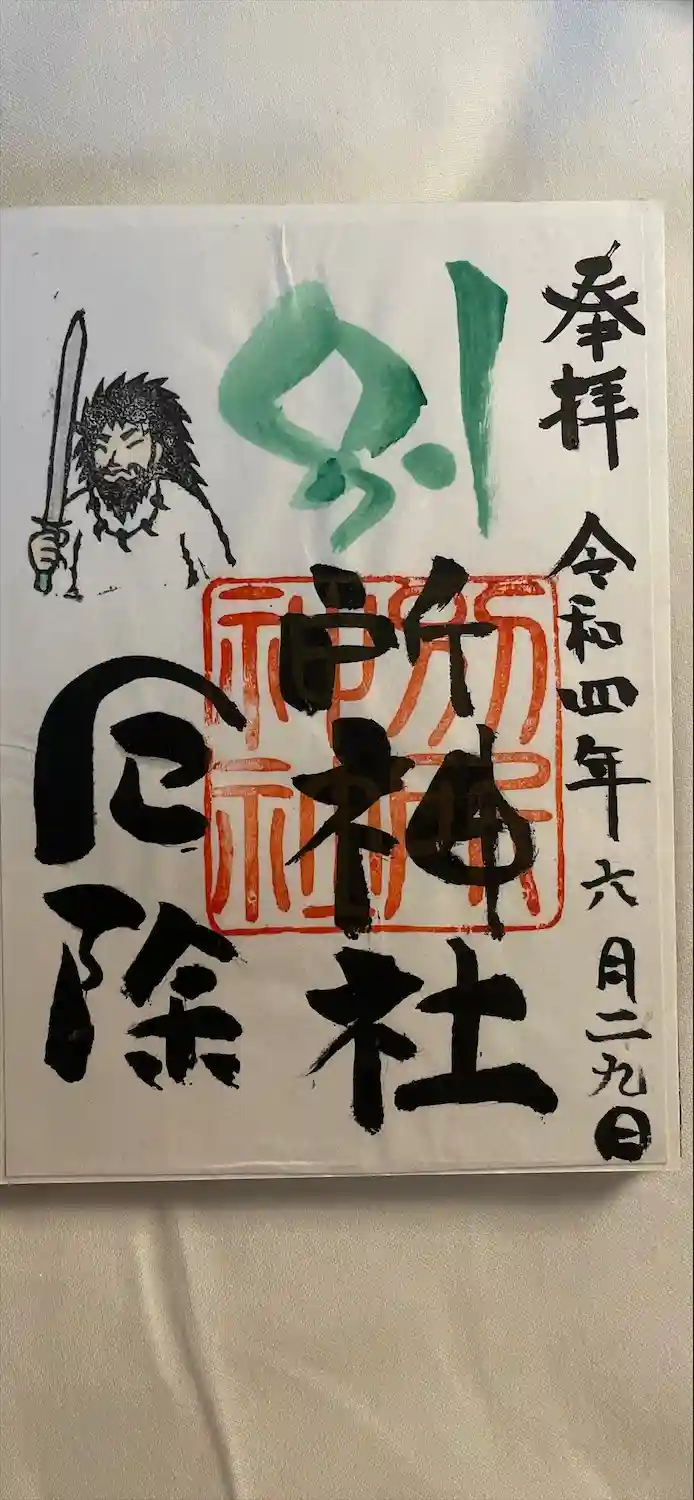 奉拝 令和四年六月二九日
別所神社
別所神社
厄除